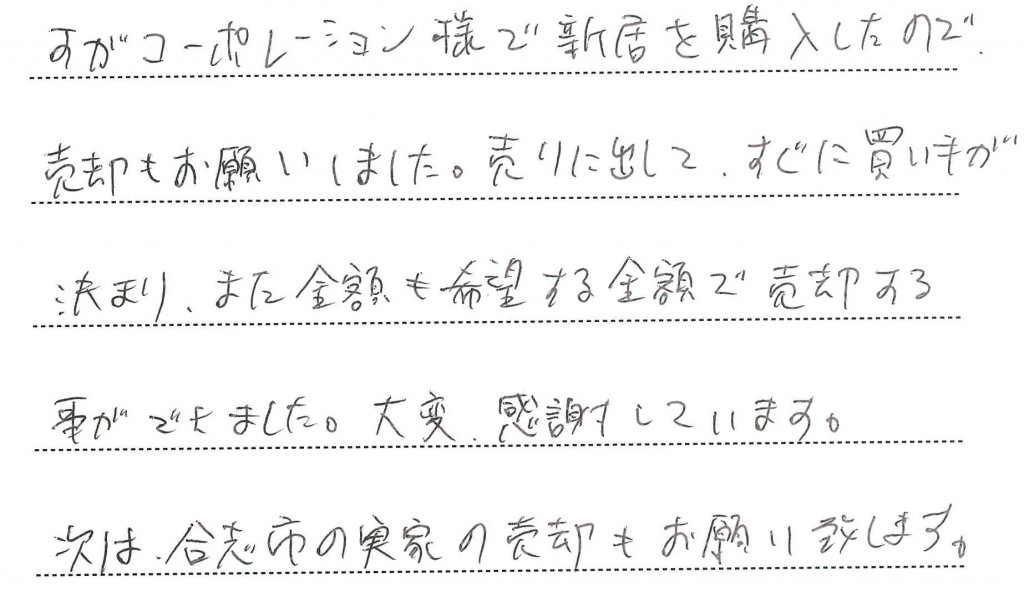 すがコーポレーション様で新居を購入したので、
売却もお願いしました。売りに出して、すぐに買い手が
決まり、また金額も希望する金額で売却する
事ができました。大変、感謝しています。
次は、合志市の実家の売却もお願い致します。